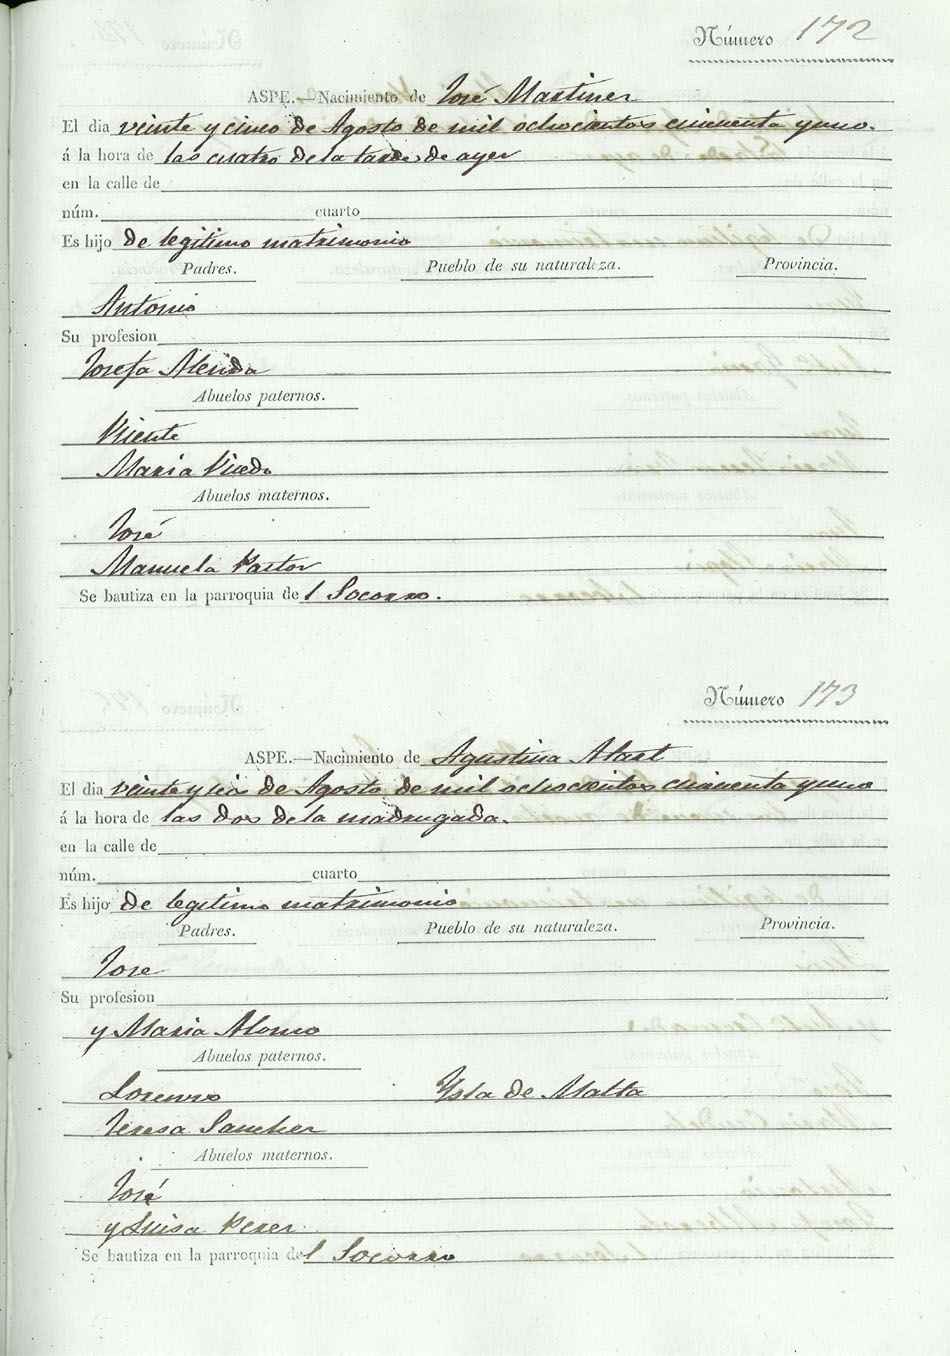 Número 172
ASPE.—Nacimiento de José Martinez
El dia veinte y cinco de Agosto de mil ochocientos cincuenta y uno.
á la hora de las cuatro de la tarde de ayer
en la calle de
núm. cuarto
Es hijo de legitimo matrimonio
Padres. Pueblo de su naturaleza. Provincia.
Antonio
Su profesion
Josefa
Abuelos paternos.
Vicente
Maria Vicedo
Abuelos maternos.
José
Manuela Pastor
Se bautiza en la parroquia del Socorro.
Número 173
ASPE.—Nacimiento de Agustina
El dia veinte y seis de Agosto de mil ochocientos cincuenta y uno
á la hora de las dos de la madrugada.
en la calle de
núm. cuarto
Es hijo de legitimo matrimonio
Padres. Pueblo de su naturaleza. Provincia.
Jose
Su profesion
y Maria Alonso
Abuelos paternos.
Lorenzo Ysla de Malta
Teresa Sanchez
Abuelos maternos.
José
y Luisa Perez
Se bautiza en la parroquia del Socorro